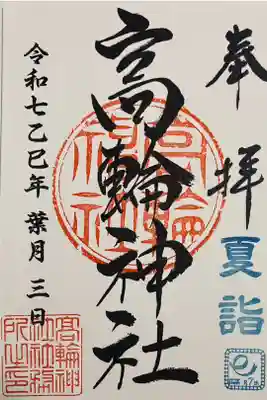 奉拝
夏詣
高輪神社
令和七乙巳年葉月三日
高輪神社
髙輪神社社務所之印